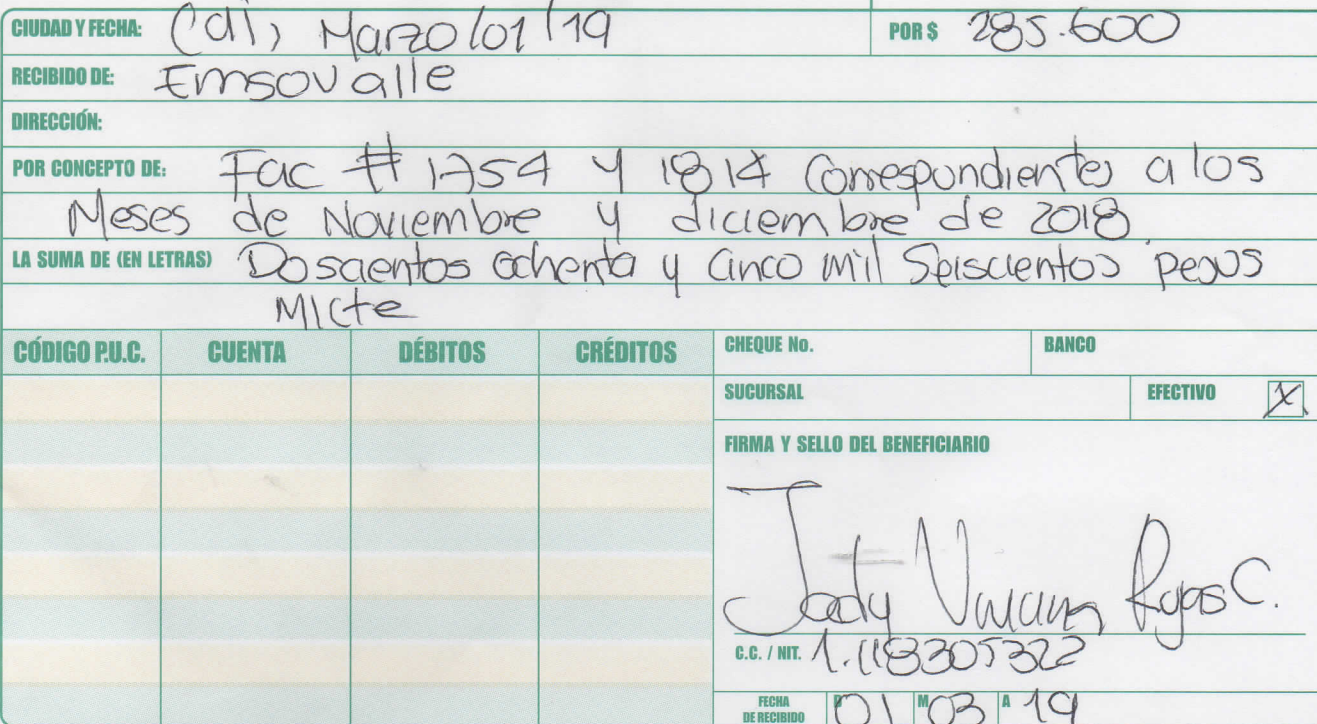 CIUDAD Y FECHA: Cali, Marzo/01/19 POR $ 285.600
RECIBIDO DE: Emsovalle
DIRECCIÓN:
POR CONCEPTO DE: Fac # 1754 y 1814 Correspondientes a los
Meses de Noviembre y diciembre de 2018
LA SUMA DE (EN LETRAS) Doscientos ochenta y cinco mil Seiscientos pesos
M/cte
CÓDIGO P.U.C. CUENTA DÉBITOS CRÉDITOS CHEQUE No. BANCO
SUCURSAL EFECTIVO X
FIRMA Y SELLO DEL BENEFICIARIO
Viviana Rojas C.
C.C. / NIT. 1.118305322
FECHA DE RECIBIDO D 01 M 03 A 19